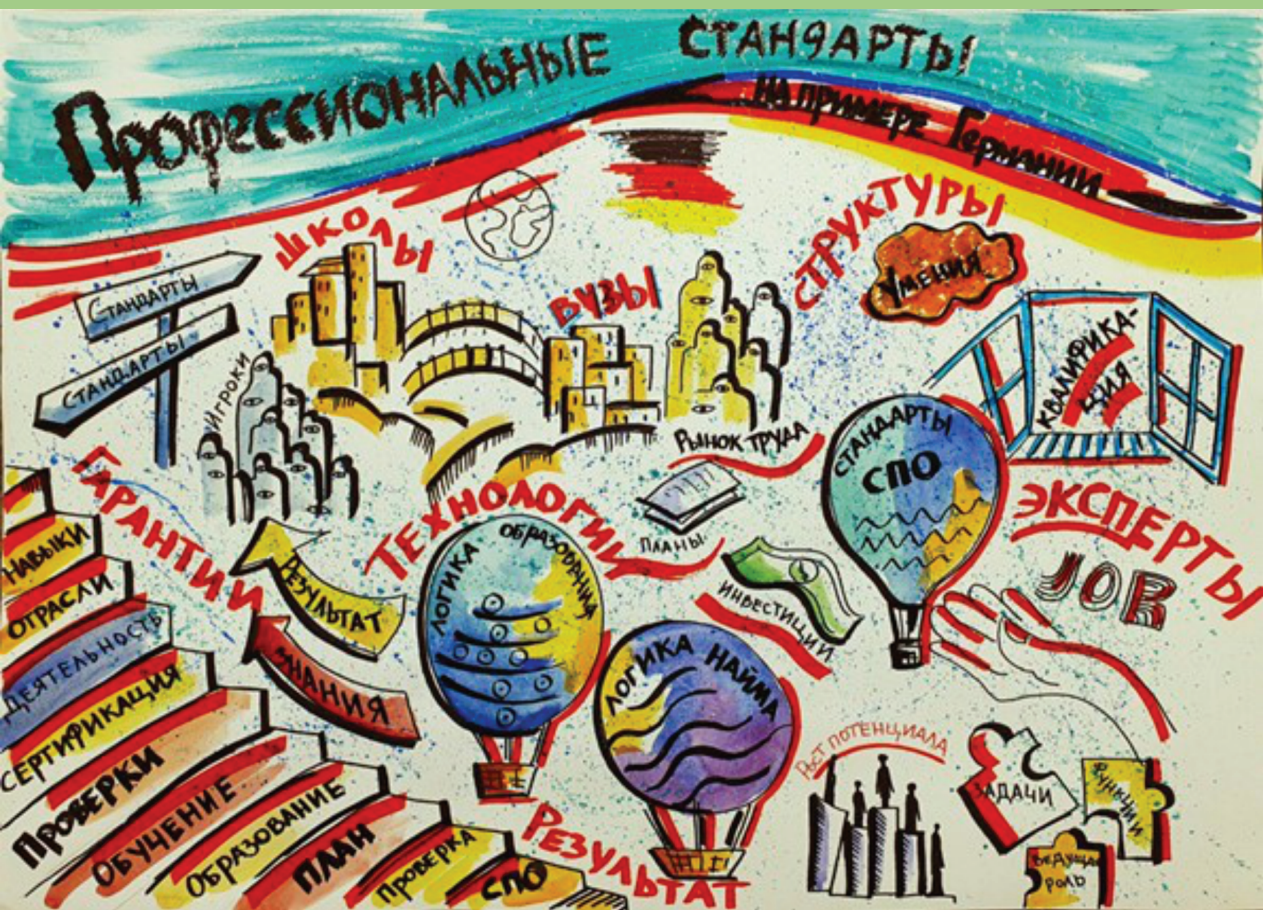 Профессиональные
СТАНДАРТЫ
на примере Германии
ШКОЛЫ
ВУЗЫ
СТРУКТУРЫ
Умения
СТАНДАРТЫ
СТАНДАРТЫ
Игроки
КВАЛИФИКА-
ЦИЯ
Рынок труда
СТАНДАРТЫ
СПО
ГАРАНТИИ
ТЕХНОЛОГИИ
ПЛАНЫ
ЭКСПЕРТЫ
JOB
РЕЗУЛЬТАТ
ЗНАНИЯ
ЛОГИКА ОБРАЗОВАНИЯ
ИНВЕСТИЦИИ
ЛОГИКА НАЙМА
НАВЫКИ
ОТРАСЛИ
ДЕЯТЕЛЬНОСТЬ
СЕРТИФИКАЦИЯ
ПРОВЕРКИ
ОБУЧЕНИЕ
ОБРАЗОВАНИЕ
ПЛАН
ПРОВЕРКА
СПО
РЕЗУЛЬТАТ
РОСТ ПОТЕНЦИАЛА
ЗАДАЧИ
ФУНКЦИИ
ВЕДУЩАЯ
РОЛЬ